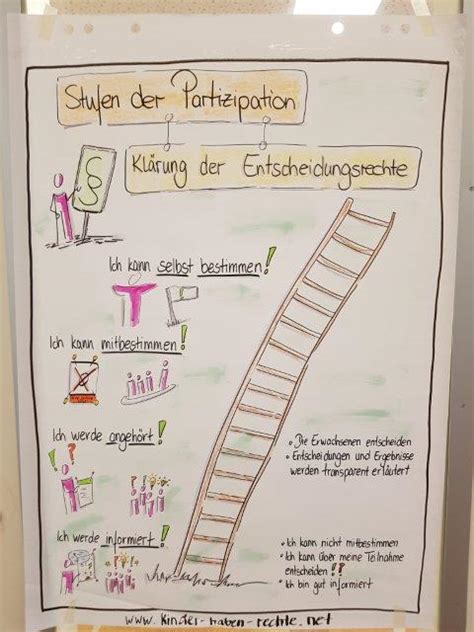 Stufen der Partizipation
Klärung der Entscheidungsrechte
§
Ich kann selbst bestimmen!
Ich kann mitbestimmen!
Ich werde angehört!
• Die Erwachsenen entscheiden
• Entscheidungen und Ergebnisse
werden transparent erläutert
Ich werde informiert!
• Ich kann nicht mitbestimmen
• Ich kann über meine Teilnahme
entscheiden !?
• Ich bin gut informiert
www.kinder-haben-rechte.net